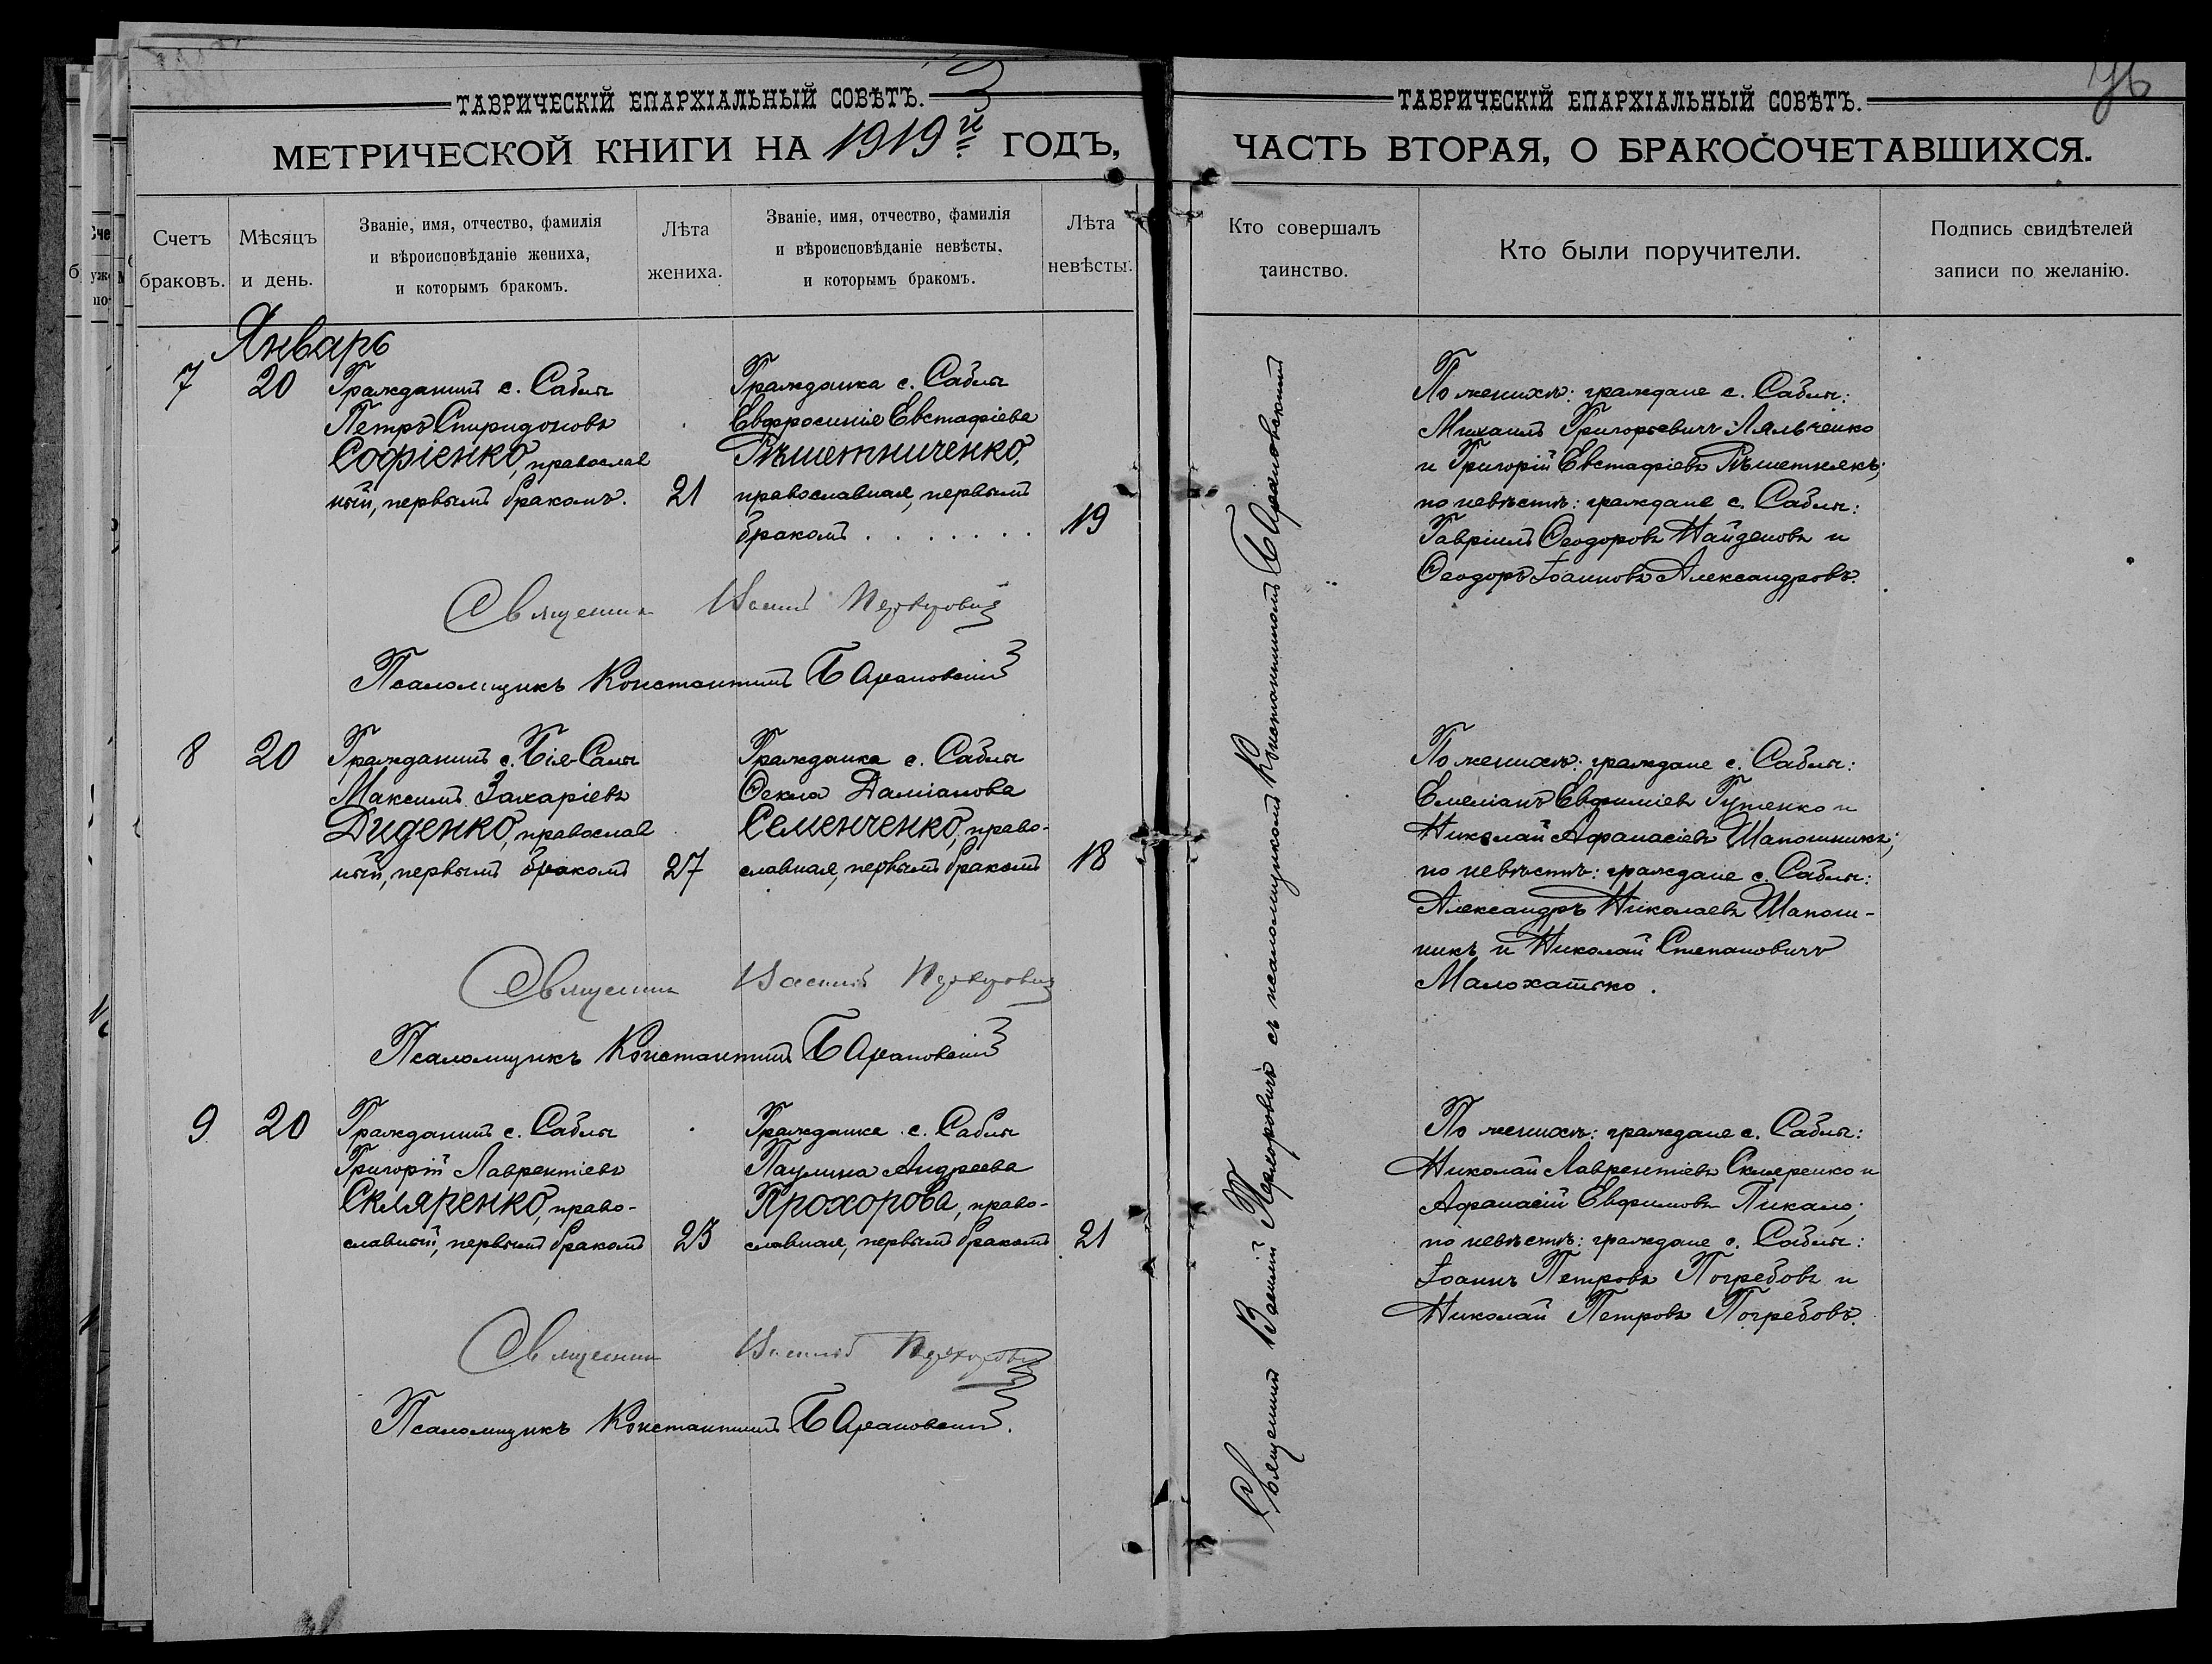 ТАВРИЧЕСКІЙ ЕПАРХІАЛЬНЫЙ СОВѢТЪ.
МЕТРИЧЕСКОЙ КНИГИ НА 1919й ГОДЪ,
Счетъ браковъ.
Мѣсяцъ и день.
Званіе, имя, отчество, фамилія
и вѣроисповѣданіе жениха,
и которымъ бракомъ.
Лѣта жениха.
Званіе, имя, отчество, фамилія
и вѣроисповѣданіе невѣсты,
и которымъ бракомъ.
Лѣта невѣсты.
Январь
7
20
Гражданинъ с. Саблы
Петръ Спиридоновъ
Софіенко, православ
ный, первымъ бракомъ.
21
Гражданка с. Саблы
Евфросинія Евстафіева
Рѣшетниченко,
православная, первымъ
бракомъ . . . . . . .
19
Священник Василій Прокопович
Псаломщикъ Константинъ Барановскій
8
20
Гражданинъ с. Бія-Салы
Максимъ Захаріевъ
Диденко, православ
ный, первымъ бракомъ
27
Гражданка с. Саблы
Ѳекла Даміанова
Семенченко, право-
славная, первымъ бракомъ
18
Священник Василій
Псаломщикъ Константинъ Барановскій
9
20
Гражданинъ с. Саблы
Григорій Лаврентіевъ
Скляренко, право-
славный, первымъ бракомъ
23
Гражданка с. Саблы
Паулина Андреева
Прохорова, право-
славная, первымъ бракомъ
21
Священник Василій
Псаломщикъ Константинъ Барановскій.
ТАВРИЧЕСКІЙ ЕПАРХІАЛЬНЫЙ СОВѢТЪ.
ЧАСТЬ ВТОРАЯ, О БРАКОСОЧЕТАВШИХСЯ.
Кто совершалъ
таинство.
Кто были поручители.
Подпись свидѣтелей
записи по желанію.
Священник Василій с псаломщикомъ Константиномъ Барановскимъ
По женихѣ: граждане с. Саблы:
Михаилъ Григорьевичъ Ляльченко
и Григорій Евстафіевъ Рѣшетнякъ;
по невѣстѣ: граждане с. Саблы:
Гавріилъ Ѳеодоровъ Найденовъ и
Ѳеодоръ Іоанновъ Александровъ.
По женихѣ: граждане с. Саблы:
Емеліанъ Евфиміевъ Гутенко и
Николай Афанасіевъ Шапошникъ;
по невѣстѣ: граждане с. Саблы:
Александръ Николаевъ Шапош-
никъ и Николай Степановичъ
Малохатько.
По женихѣ: граждане с. Саблы:
Николай Лаврентіевъ Скляренко и
Афанасій Евфимовъ Пикало;
по невѣстѣ: граждане с. Саблы:
Іоаннъ Петровъ Погребовъ и
Николай Петровъ Погребовъ.